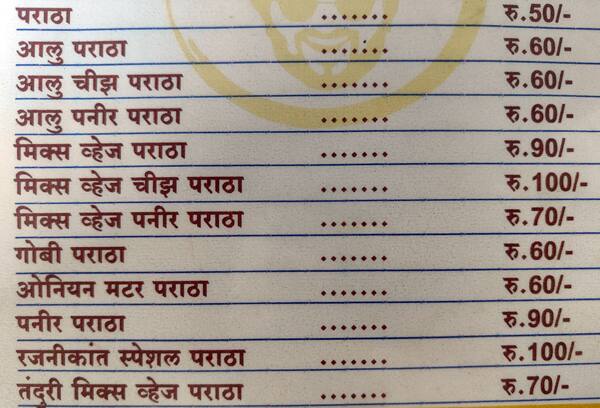 पराठा ....... रु.50/-
आलु पराठा ....... रु.60/-
आलु चीझ पराठा ....... रु.60/-
आलु पनीर पराठा ....... रु.60/-
मिक्स व्हेज पराठा ....... रु.90/-
मिक्स व्हेज चीझ पराठा ....... रु.100/-
मिक्स व्हेज पनीर पराठा ....... रु.70/-
गोबी पराठा ....... रु.60/-
ओनियन मटर पराठा ....... रु.60/-
पनीर पराठा ....... रु.90/-
रजनीकांत स्पेशल पराठा ....... रु.100/-
तंदुरी मिक्स व्हेज पराठा ....... रु.70/-